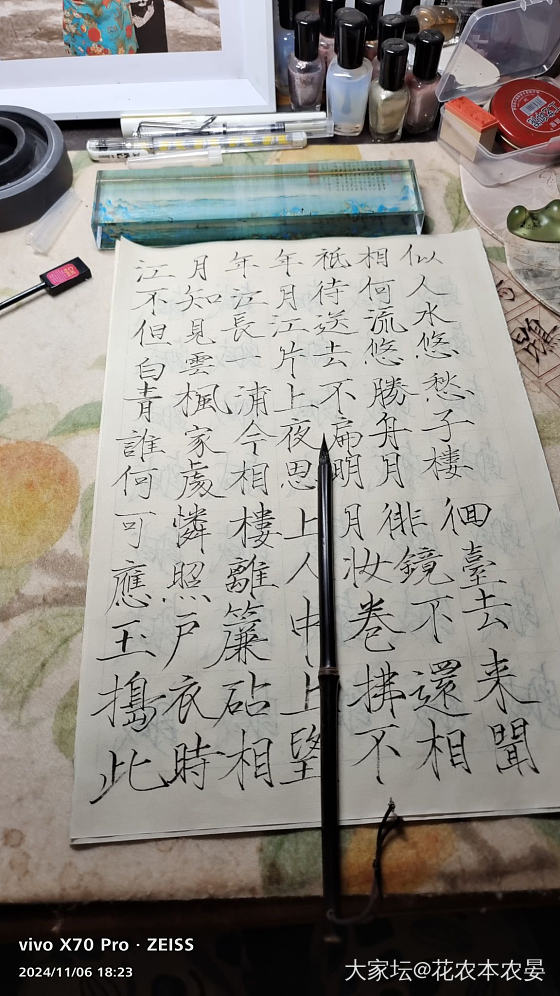 江月年年祗相似
不知江月待何人
但見長江送流水
白雲一片去悠悠
青楓浦上不勝愁
誰家今夜扁舟子
何處相思明月樓
可憐樓上月徘徊
應照離人妆鏡臺
玉戶簾中卷不去
搗衣砧上拂還来
此時相望不相聞
vivo X70 Pro · ZEISS
2024/11/06 18:23
大家坛@花农本农晏